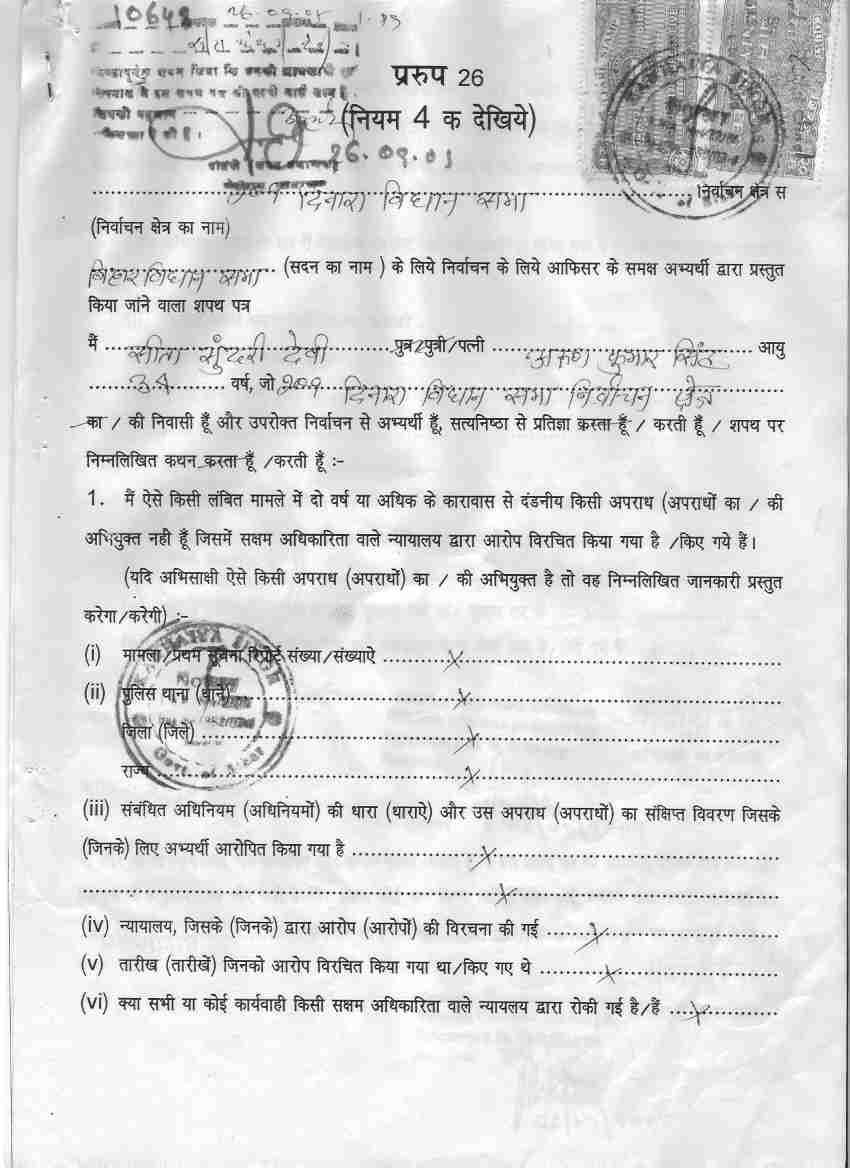 10648 26.09.05
प्ररुप 26
(नियम 4 क देखिये)
26.09.05
209 दिनारा विधान सभा निर्वाचन क्षेत्र स
(निर्वाचन क्षेत्र का नाम)
बिहार विधान सभा (सदन का नाम ) के लिये निर्वाचन के लिये आफिसर के समक्ष अभ्यर्थी द्वारा प्रस्तुत
किया जांने वाला शपथ पत्र
मैं सीता सुंदरी देवी पुत्र/पुत्री/पत्नी अरुण कुमार सिंह आयु
34 वर्ष, जो 209 दिनारा विधान सभा निर्वाचन क्षेत्र
का / की निवासी हूँ और उपरोक्त निर्वाचन से अभ्यर्थी हूँ, सत्यनिष्ठा से प्रतिज्ञा करता हूँ / करती हूँ / शपथ पर
निम्नलिखित कथन करता हूँ /करती हूँ :-
1. मैं ऐसे किसी लंबित मामले में दो वर्ष या अधिक के कारावास से दंडनीय किसी अपराध (अपराधों का / की
अभियुक्त नही हूँ जिसमें सक्षम अधिकारिता वाले न्यायालय द्वारा आरोप विरचित किया गया है /किए गये हैं।
(यदि अभिसाक्षी ऐसे किसी अपराध (अपराधों) का / की अभियुक्त है तो वह निम्नलिखित जानकारी प्रस्तुत
करेगा/करेगी) :-
(i) मामला/प्रथम सूचना रिपोर्ट संख्या/संख्याऐ X
(ii) पुलिस थाना (थाने) X
जिला (जिले) X
राज्य X
(iii) संबंधित अधिनियम (अधिनियमों) की धारा (धाराऐ) और उस अपराध (अपराधों) का संक्षिप्त विवरण जिसके
(जिनके) लिए अभ्यर्थी आरोपित किया गया है X
X
(iv) न्यायालय, जिसके (जिनके) द्वारा आरोप (आरोपों) की विरचना की गई X
(v) तारीख (तारीखें) जिनको आरोप विरचित किया गया था/किए गए थे X
(vi) क्या सभी या कोई कार्यवाही किसी सक्षम अधिकारिता वाले न्यायलय द्वारा रोकी गई है/हैं X